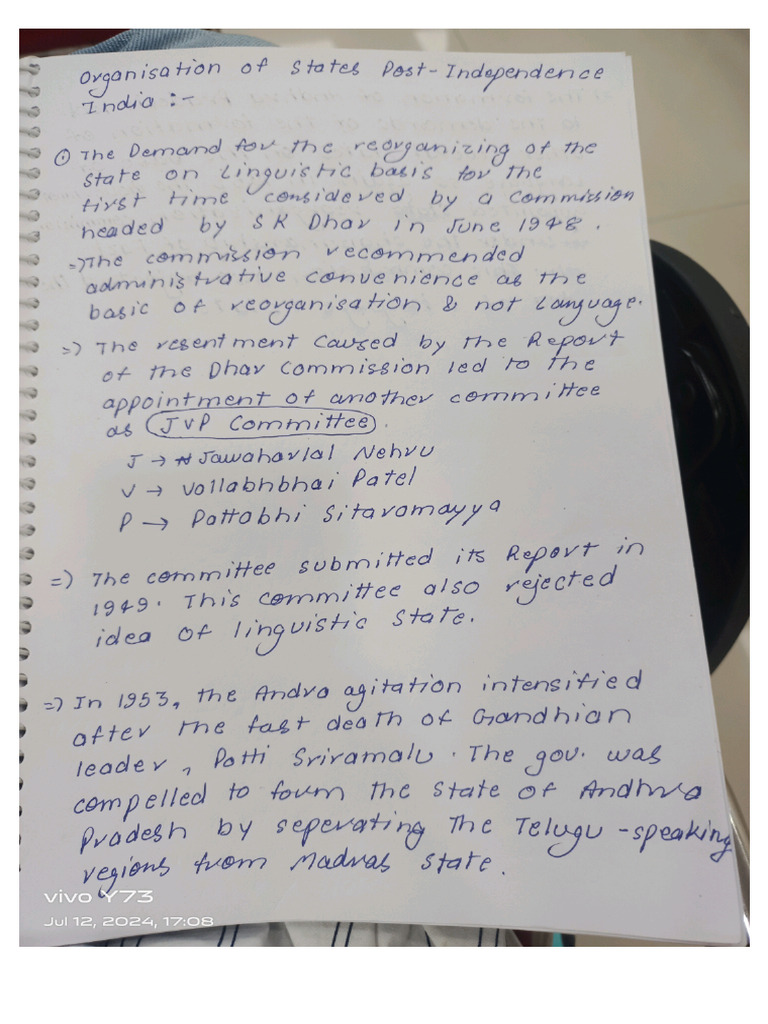 Organisation of States Post-Independence
India :-
① The Demand for the reorganizing of the
State on Linguistic basis for the
first time considered by a commission
headed by S K Dhar in June 1948.
⇒ The commission recommended
administrative convenience as the
basic of reorganisation & not Language.
⇒ The resentment caused by the Report
of the Dhar Commission led to the
appointment of another committee
as JVP Committee.
J → Jawaharlal Nehru
V → Vallabhbhai Patel
P → Pattabhi Sitaramayya
⇒ The committee submitted its Report in
1949. This committee also rejected
idea of linguistic State.
⇒ In 1953, the Andra agitation intensified
after the fast death of Gandhian
leader, Potti Sriramalu. The gov. was
compelled to form the State of Andhra
Pradesh by seperating The Telugu-speaking
regions from Madras State.
vivo Y73
Jul 12, 2024, 17:08